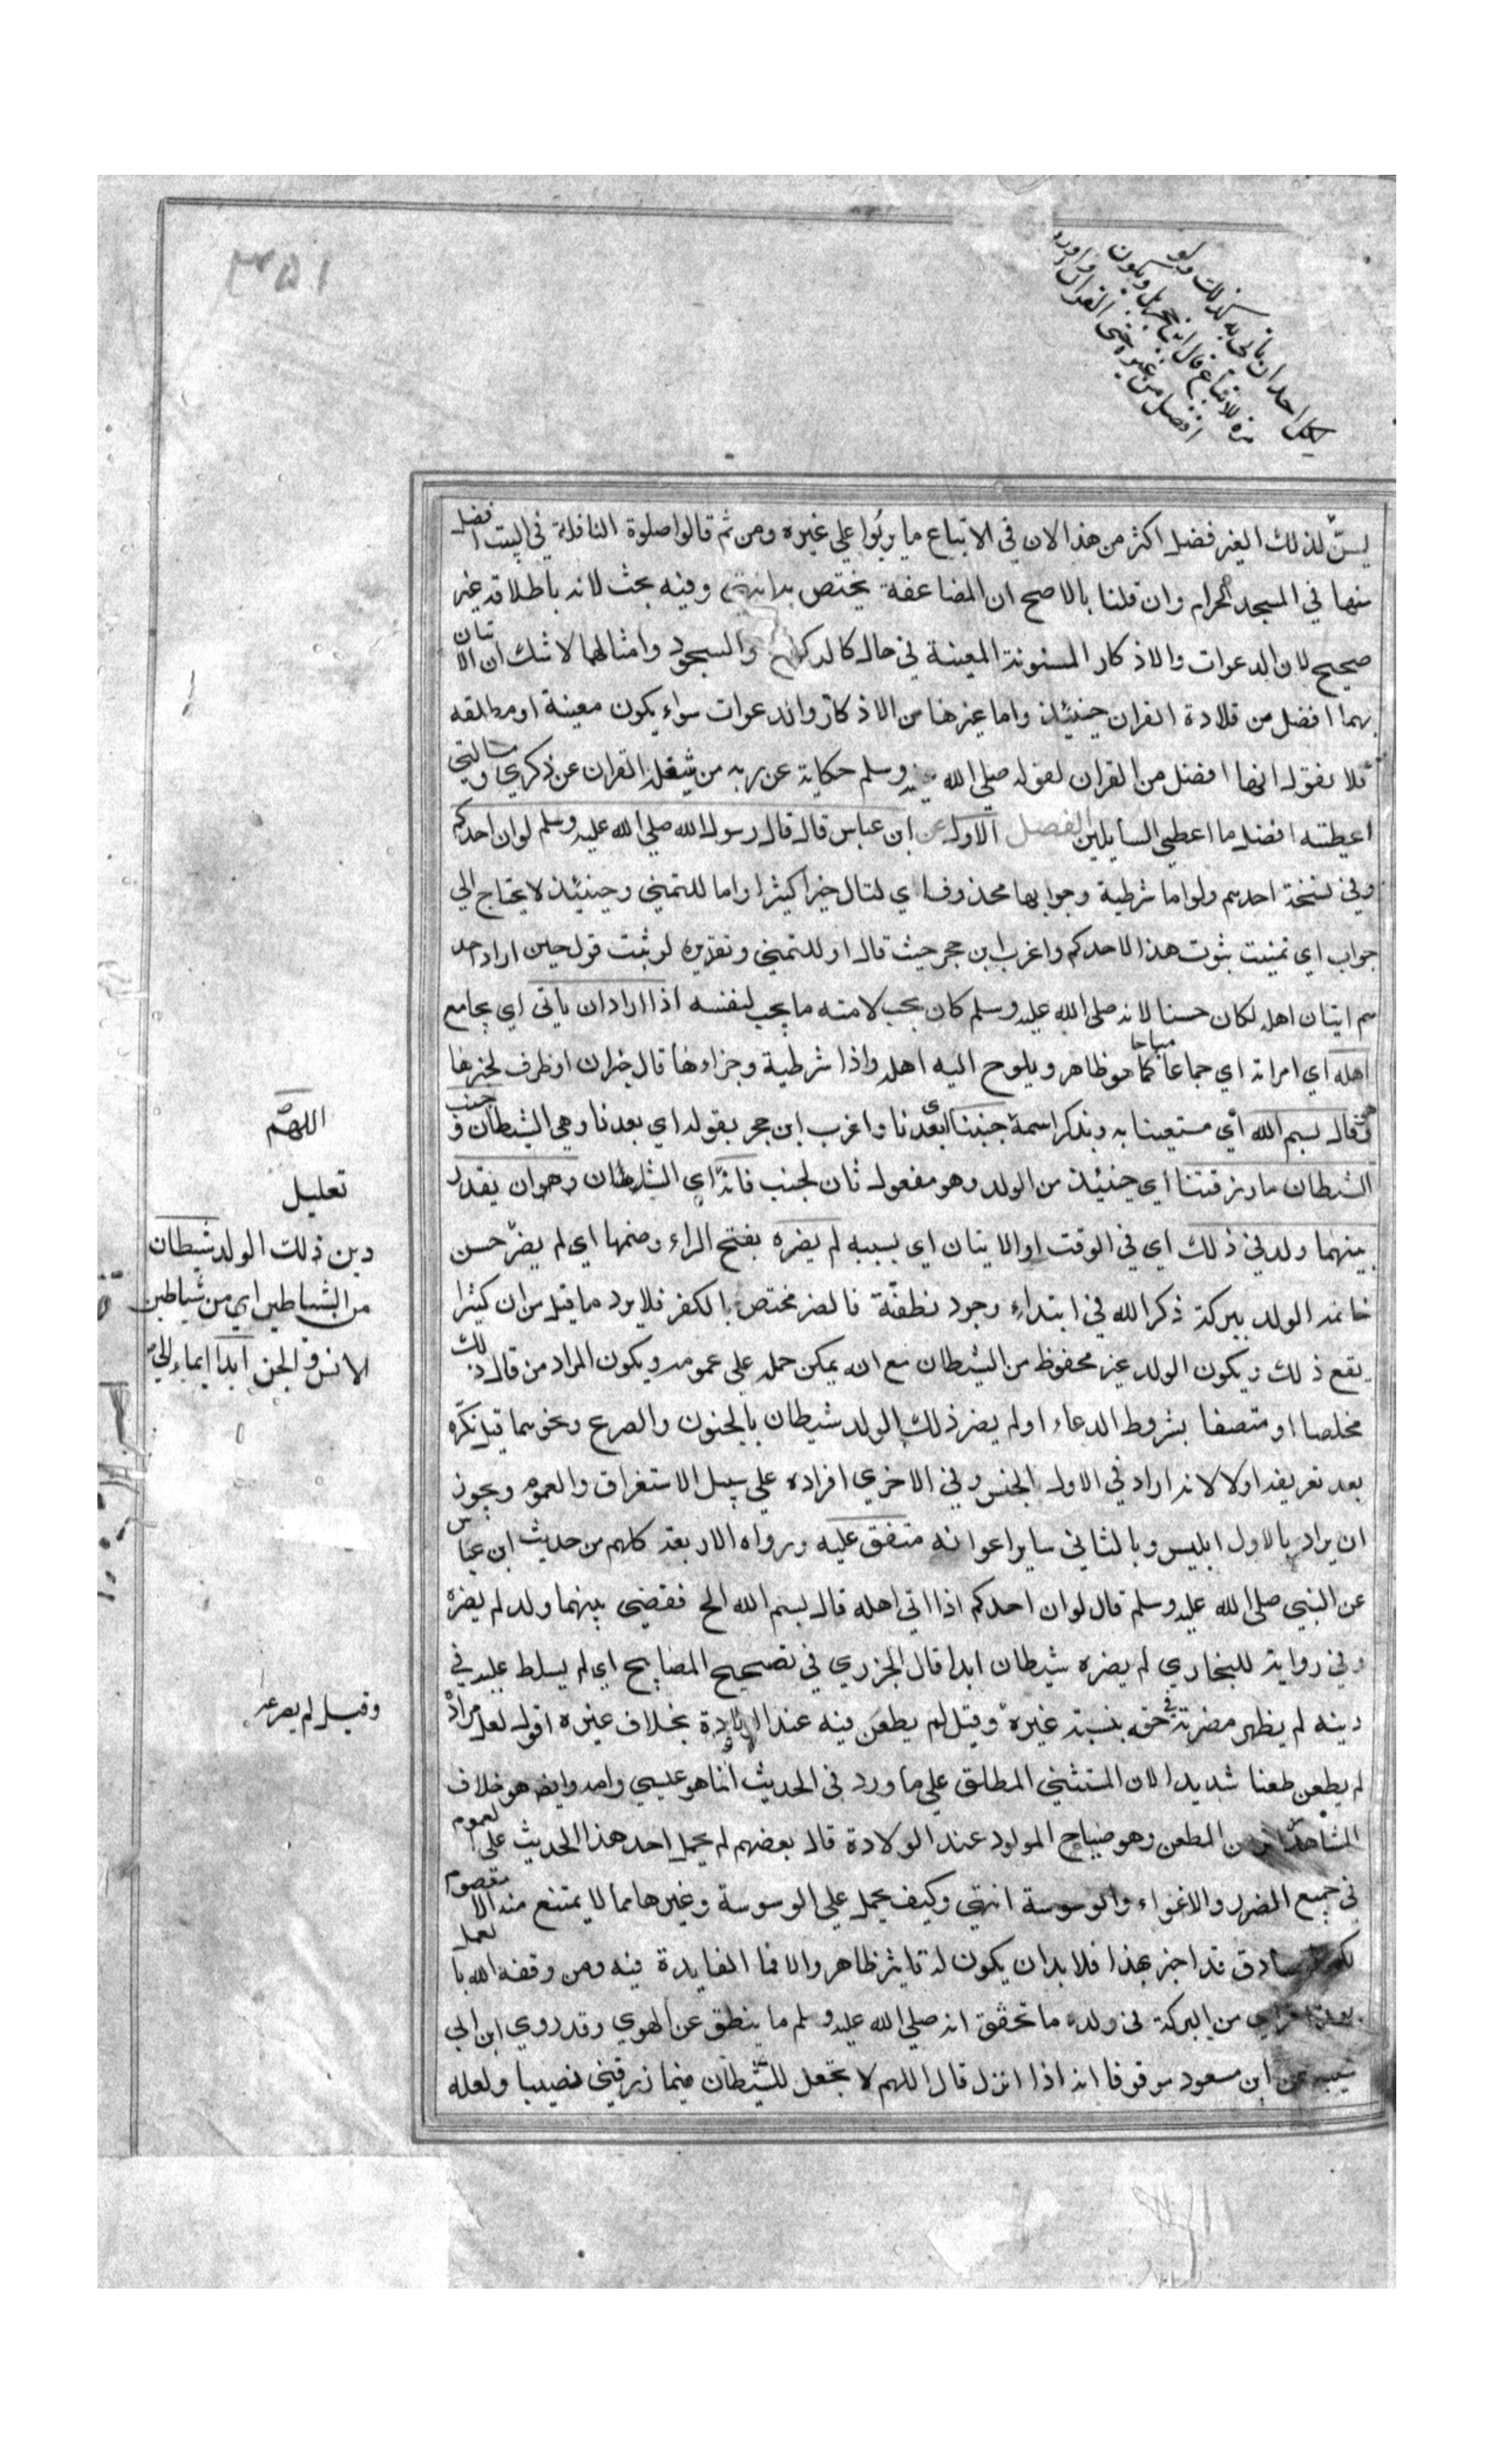 لكل احد ان ياتي به كذلك ولو
مرة للاتباع قال ابن حجر بل ويكون
افضل من غيره حتى القران
٣٥١
ليس لذلك الغير فضل اكثر من هذا لان في الاتباع ما يربوا علي غيره ومن ثم قالوا صلوة النافلة في البيت افضل
منها في المسجد الحرام وان قلنا بالاصح ان المضاعفة يختص به انتهي وفيه بحث لانه باطلاقه غير
صحيح لان الدعوات والاذكار المسنونة المعينة في حال كالركوع والسجود وامثالهما لا شك ان الاتيان
بهما افضل من تلادة القران حينئذ واما غيرهنا من الاذكار والدعوات سواء يكون معينة او مطلقه
فلا يقول انها افضل من القران لقوله صلي الله عليه وسلم حكاية عن ربه من شغله القران عن ذكري ومسالتي
اعطيته افضل ما اعطي السايلين الفصل الاول عن ابن عباس قال قال رسول الله صلي الله عليه وسلم لو ان احدكم
وفي نسخة احدهم ولو اما شرطية وجوابها محذوف اي لنال خيرا كثيرا واما للتمني وحينئذ لا يحتاج الي
جواب اي تمنيت ثبوت هذا لاحدكم واغرب ابن حجر حيث قال او للتمني وتقديره لو ثبت قول حين اراد احد
هم اتيان اهله لكان حسنا لانه صلي الله عليه وسلم كان يحب لامته ما يحب لنفسه اذا اراد ان ياتي اي يجامع
اهله اي امراته اي جماعا مباحا كما هو ظاهر ويلوح اليه اهله واذا شرطية وجزاءها قال خبران او ظرف لخبرها
قال بسم الله اي مستعينا به وبذكر اسمه جنبنا اي بعدنا واغرب ابن حجر بقوله اي بعدنا وهي الشيطان وجنب
الشيطان ما رزقتنا اي حينئذ من الولد وهو مفعول ثان لجنب فانه اي الشان وهو ان يقدر
بينهما ولد في ذلك اي في الوقت او الاتيان اي بسببه لم يضره بفتح الراء وضمها اي لم يضر حسن
خاتمة الولد ببركة ذكر الله في ابتداء وجود نطفة فالضر مختص بالكفر فلا يرد ما قيل من ان كثيرا
يقع ذلك ويكون الولد غير محفوظ من الشيطان مع انه يمكن حمله علي عمومه ويكون المراد من قال ذلك
مخلصا او متصفا بشروط الدعاء او لم يضر ذلك الولد شيطان بالجنون والصرع ونحوهما قيل نكره
بعد تعريفه اولا لانه اراد في الاول الجنس وفي الاخري افراده علي سبيل الاستغراق والعموم ويجوز
ان يراد بالاول ابليس وبالثاني ساير اعوانه متفق عليه ورواه الاربعة كلهم من حديث ابن عباس
عن النبي صلي الله عليه وسلم قال لو ان احدكم اذا اتي اهله قال بسم الله الخ فقضي بينهما ولد لم يضره
وفي رواية للبخاري لم يضره شيطان ابدا قال الجزري في تصحيح المصابيح اي لم يسلط عليه في
دينه لم يظهر مضرته في حقه بنسبة غيره وقيل لم يطعن فيه عند الولادة بخلاف غيره اقول لعل مراده
لم يطعن طعنا شديدا لان المستثني المطلق علي ما ورد في الحديث انما هو عيسي وامه وايضا هو خلاف
المشاهد من الطعن وهو صياح المولود عند الولادة قال بعضهم لم يحمل احد هذا الحديث علي العموم
في جميع الضرر والاغواء والوسوسة انتهي وكيف يحمل علي الوسوسة وغيرها مما لا يمتنع منه الا معصوم
لكن الصادق قد اخبر بهذا فلا بد ان يكون له تاثير ظاهر والا فما الفايدة فيه ومن وفقه الله بالعمل
بهذا من البركة في ولده ما تحقق انه صلي الله عليه وسلم ما ينطق عن الهوي وقد روي ابن ابي
شيبه عن ابن مسعود موقوفا انه اذا انزل قال اللهم لا تجعل للشيطان فيما رزقني نصيبا ولعله
اللهم
تعليل
دين ذلك الولد شيطان
من الشياطين اي من شياطين
الانس والجن ابدا ايماء الي
وقيل لم يصرعه